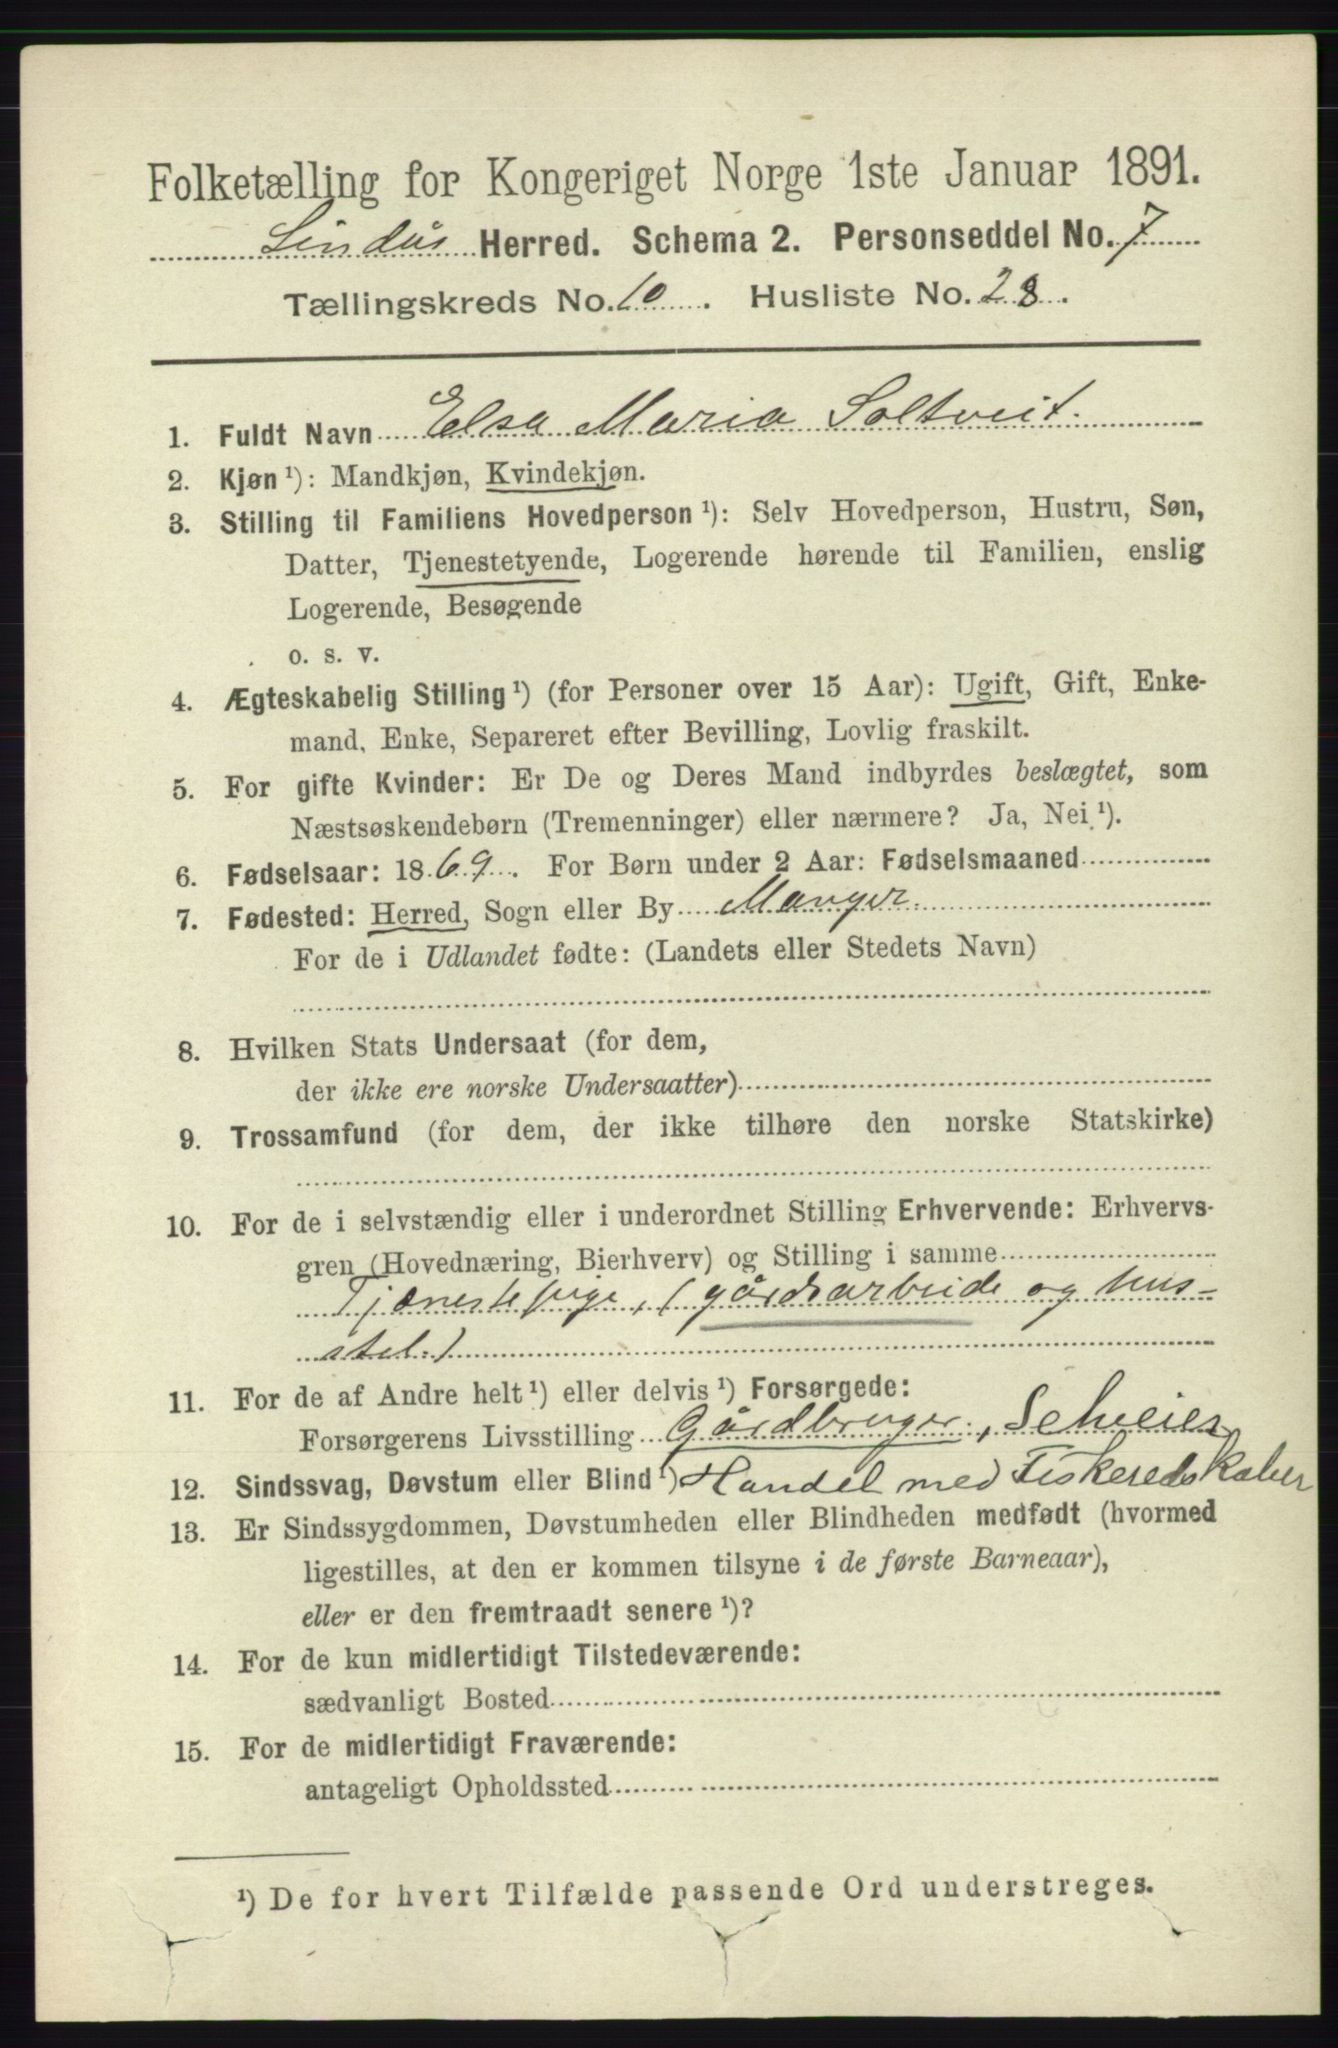 Folketælling for Kongeriget Norge 1ste Januar 1891.
Lindås Herred. Schema 2. Personseddel No. 7
Tællingskreds No. 10. Husliste No. 28.
1. Fuldt Navn Elsa Maria Soltveit.
2. Kjøn ¹): Mandkjøn, Kvindekjøn.
3. Stilling til Familiens Hovedperson ¹): Selv Hovedperson, Hustru, Søn,
Datter, Tjenestetyende, Logerende hørende til Familien, enslig
Logerende, Besøgende
o. s. v.
4. Ægteskabelig Stilling ¹) (for Personer over 15 Aar): Ugift, Gift, Enke-
mand, Enke, Separeret efter Bevilling, Lovlig fraskilt.
5. For gifte Kvinder: Er De og Deres Mand indbyrdes beslægtet, som
Næstsøskendebørn (Tremenninger) eller nærmere? Ja, Nei ¹).
6. Fødselsaar: 1869. For Børn under 2 Aar: Fødselsmaaned
7. Fødested: Herred, Sogn eller By Manger.
For de i Udlandet fødte: (Landets eller Stedets Navn)
8. Hvilken Stats Undersaat (for dem,
der ikke ere norske Undersaatter)
9. Trossamfund (for dem, der ikke tilhøre den norske Statskirke)
10. For de i selvstændig eller i underordnet Stilling Erhvervende: Erhvervs-
gren (Hovednæring, Bierhverv) og Stilling i samme
Tjænestepige, (gårdsarbeide og hus-
stel.)
11. For de af Andre helt ¹) eller delvis ¹) Forsørgede:
Forsørgerens Livsstilling Gårdbruger,
12. Sindssvag, Døvstum eller Blind ¹) Handel med Fiskeredskaber
13. Er Sindssygdommen, Døvstumheden eller Blindheden medfødt (hvormed
ligestilles, at den er kommen tilsyne i de første Barneaar),
eller er den fremtraadt senere ¹)?
14. For de kun midlertidigt Tilstedeværende:
sædvanligt Bosted
15. For de midlertidigt Fraværende:
antageligt Opholdssted
¹) De for hvert Tilfælde passende Ord understreges.